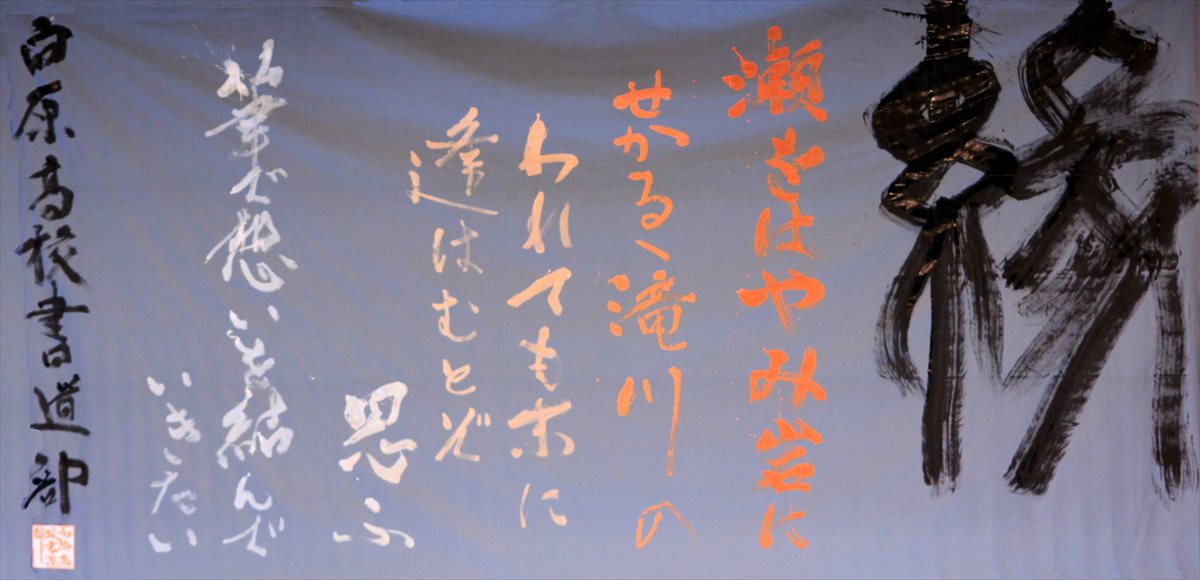 瀬をはやみ岩に
せかるゝ滝川の
われても末に
逢はむとぞ
思ふ
筆で想いを結んで
いきたい
原高校書道部